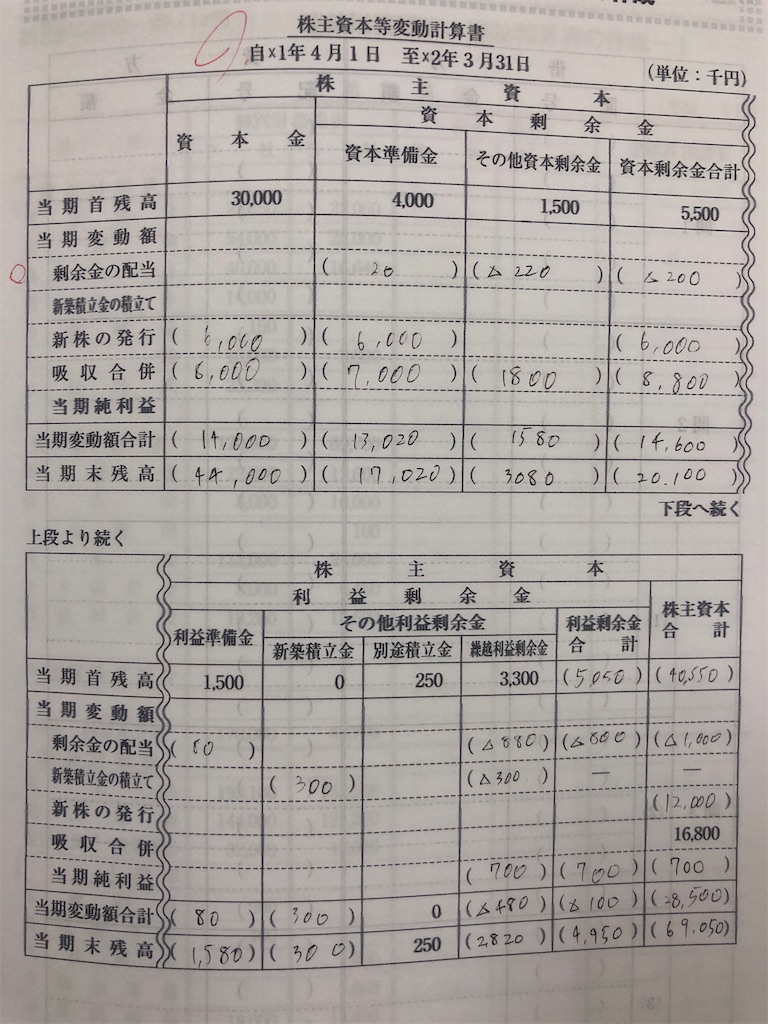 株主資本等変動計算書
自×1年4月1日 至×2年3月31日
(単位:千円)
株 主 資 本
資 本 剰 余 金
資 本 金 資本準備金 その他資本剰余金 資本剰余金合計
当期首残高 30,000 4,000 1,500 5,500
当期変動額
剰余金の配当 ( 20 ) (△220 ) (△200 )
新築積立金の積立て
新株の発行 ( 6,000 ) ( 6,000 ) ( 6,000 )
吸収合併 ( 8,000 ) ( 7,000 ) ( 1800 ) ( 8,800 )
当期純利益
当期変動額合計 ( 14,000 ) ( 13,020 ) ( 1580 ) ( 14,600 )
当期末残高 ( 44,000 ) ( 17,020 ) ( 3080 ) ( 20.100 )
下段へ続く
上段より続く
株 主 資 本
利 益 剰 余 金
株主資本合計
利益準備金 その他利益剰余金 利益剰余金合計
新築積立金 別途積立金 繰越利益剰余金
当期首残高 1,500 0 250 3,300 (5,050) (40,550)
当期変動額
剰余金の配当 ( 80 ) (△880) (△800) (△1,000)
新築積立金の積立て ( 300 ) (△300 ) — —
新株の発行 (12,000)
吸収合併 16,800
当期純利益 ( 700 ) ( 700 ) ( 700 )
当期変動額合計 ( 80 ) ( 300 ) 0 (△480 ) (△100 ) (28,500)
当期末残高 ( 1,580) ( 300) 250 (2820 ) (4,950 ) (69.050)